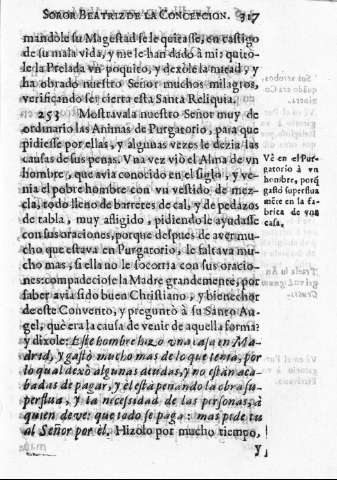 SOROR BEATRIZ DE LA CONCEPCION. 317
mandòle su Magestad se le quitasse, en castigo
de su mala vida, y me le han dado à mi: quitò-
le la Prelada vn poquito, y dexòle la mitad, y
ha obrado nuestro Señor muchos milagros,
verificando ser cierta esta Santa Reliquia.
253 Mostravala nuestro Señor muy de
ordinario las Animas de Purgatorio, para que
pidiesse por ellas, y algunas vezes le dezia las
causas de sus penas. Vna vez viò el Alma de vn
hombre, que avia conocido en el siglo, y ve-
nia el pobre hombre con vn vestido de mez-
cla, todo lleno de barretes de cal, y de pedazos
de tabla, muy afligido, pidiendole ayudasse
con sus oraciones, porque despues de aver mu-
cho que estava en Purgatorio, le faltava mu-
cho mas, si ella no le socorria con sus oracio-
nes: compadeciose la Madre grandemente, por
saber avia sido buen Christiano, y bienechor
de este Convento, y preguntò à su Santo An-
gel, què era la causa de venir de aquella forma?
y dixole: Este hombre hizo vna casa en Ma-
drid, y gastò mucho mas de lo que tenia, por
lo qual dexò algunas deudas, y no estàn aca-
badas de pagar, y èl està penando la obra su-
perflua, y la necessidad de las personas, à
quien deve: que todo se paga: mas pide tu
al Señor por èl. Hizolo por mucho tiempo,
y
Vè en el Pur-
gatorio à vn
hombre, porq̃
gastò superflua
mẽte en la fa-
brica de vna
casa.